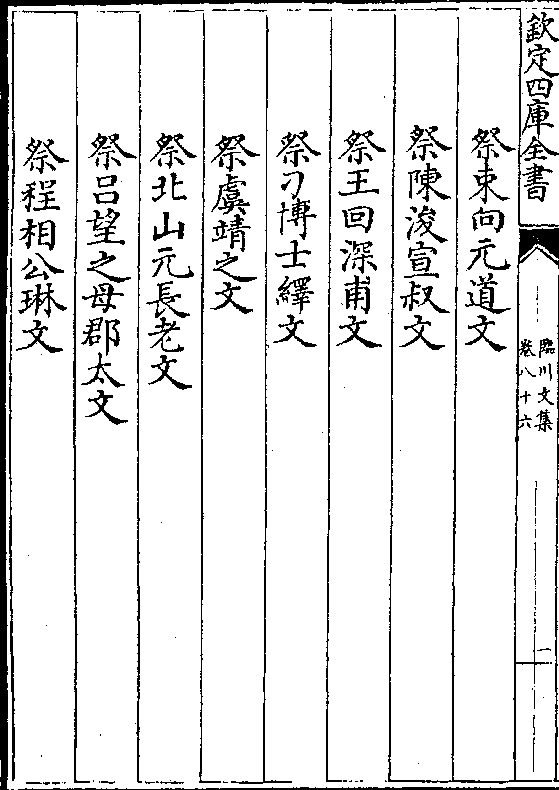 欽定四庫全書
臨川文集
卷八十六
一
祭束向元道文
祭陳浚宣叔文
祭王回深甫文
祭刁博士繹文
祭虞靖之文
祭北山元長老文
祭吕望之母郡太文
祭程相公琳文